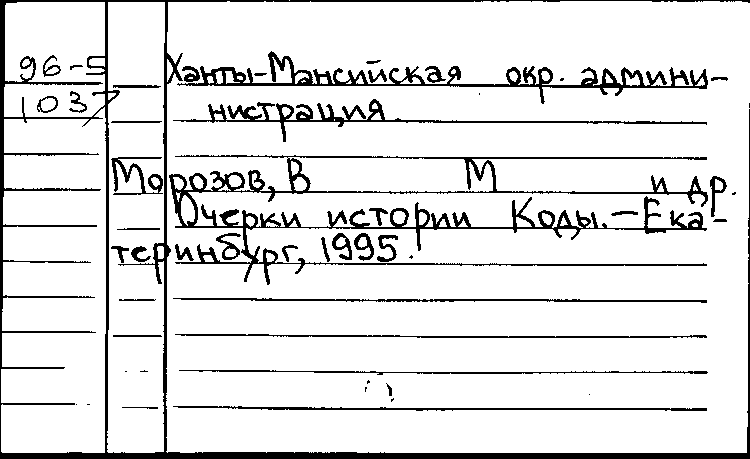 96-5
1037
Ханты-Мансийская окр. админи-
нистрация
Морозов, В М и др.
Очерки истории Коды.-Ека-
теринбург, 1995.